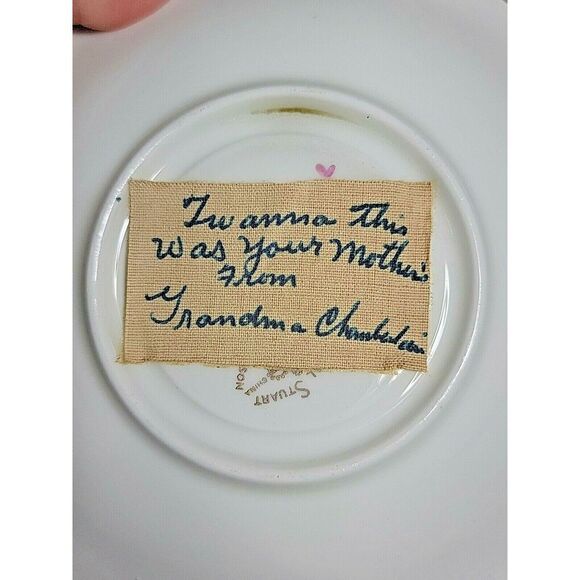 Twanna This
Was Your Mother's
From
Grandma Chamberlain
STUART
CHINA
SON